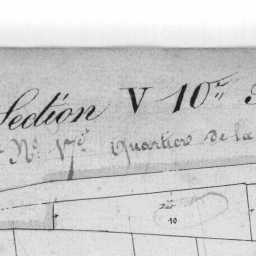 Section V 10e
No. 17e Quartier de la
10